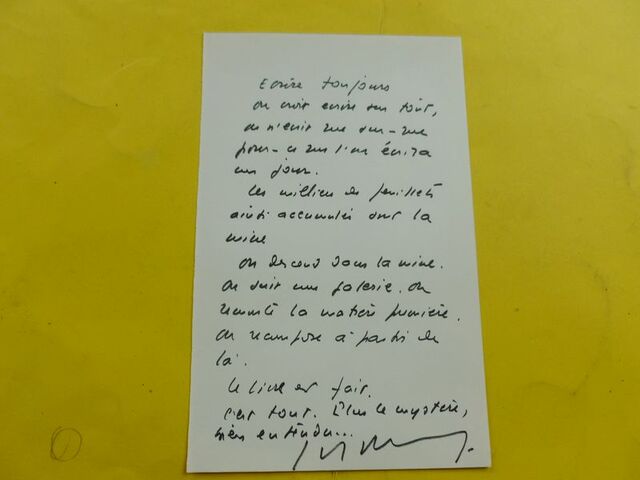 Ecrire toujours
On croit écrire sur tout,
on n'écrit que sur - que
pour - ce que l'on écrira
un jour.
Les milliers de feuillets
ainsi accumulés sont la
mine
On descend dans la mine.
On suit une galerie. On
remonte la matière première.
On recompose à partir de
là.
Le livre est fait.
C'est tout. Plus le mystère,
bien entendu...